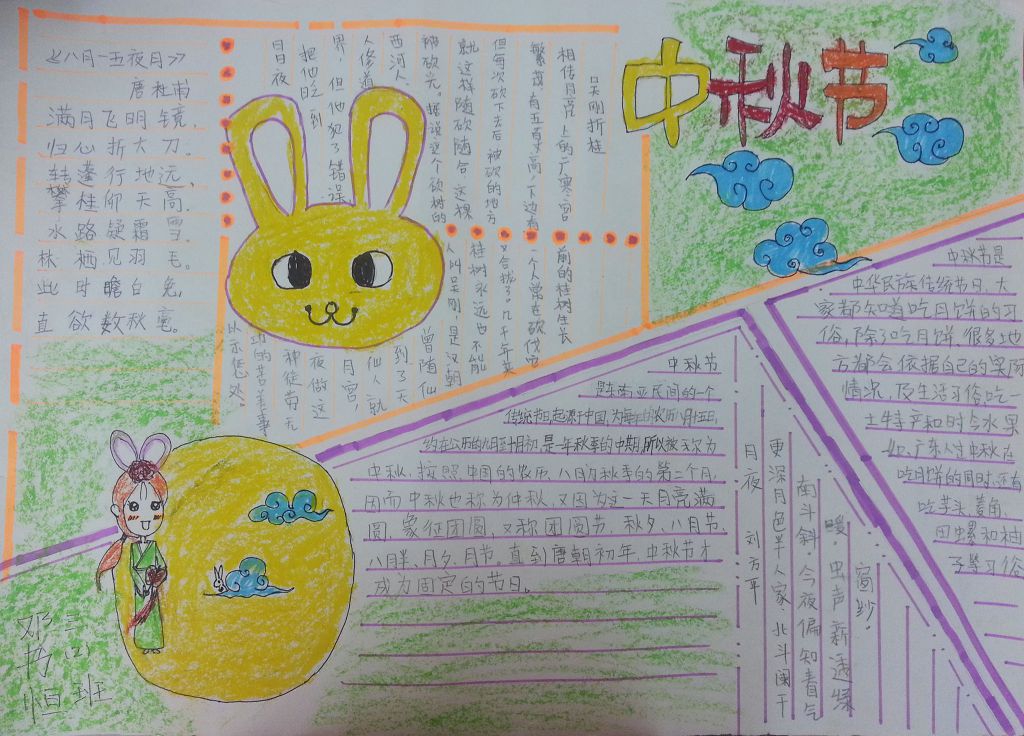 中秋节
《八月十五夜月》
唐杜甫
满月飞明镜,
归心折大刀。
转蓬行地远,
攀桂仰天高。
水路疑霜雪,
林栖见羽毛。
此时瞻白兔,
直欲数秋毫。
吴刚折桂
相传月亮上的广寒宫
前的桂树生长
繁茂,有五百多高,下边有
一个人常在砍伐它
但每次砍下去后 被砍的地方
又合拢了。几千年来
就这样随砍随合,这棵
桂树永远也不能
被砍光。据说这个砍树的
人叫吴刚,是汉朝
西河人,
曾随仙
人修道
到了天
界,但他犯了错误
仙人就
把他贬到
月宫,
日日夜
夜做这
种徒劳无
功的苦差事
以示惩处。
中秋节
是东南亚民间的一个
传统节日,起源于中国,为每年的农历八月十五日,
约在公历的九月至十月初,是一年秋季的中期,所以被天次为
中秋,按照中国的农历,八月为秋季的第二个月,
因而中秋也称为仲秋,又因为这一天月亮满
圆,象征团圆,又称团圆节、秋夕、八月节、
八月半、月夕、月节。直到唐朝初年,中秋节才
成为固定的节日。
月夜 刘方平
更深月色半人家 北斗阑干
南斗斜。今夜偏知春气
暖 虫声新透绿
窗纱
中秋节是
中华民族传统节日,大
家都知道吃月饼的习
俗,除了吃月饼,很多地
方都会依据自己的实际
情况,及生活习俗吃一
土特产和时令水果
如,广东人过中秋在
吃月饼的同时,还有
吃芋头、菱角、
田螺和柚
子等习俗
三(2)班